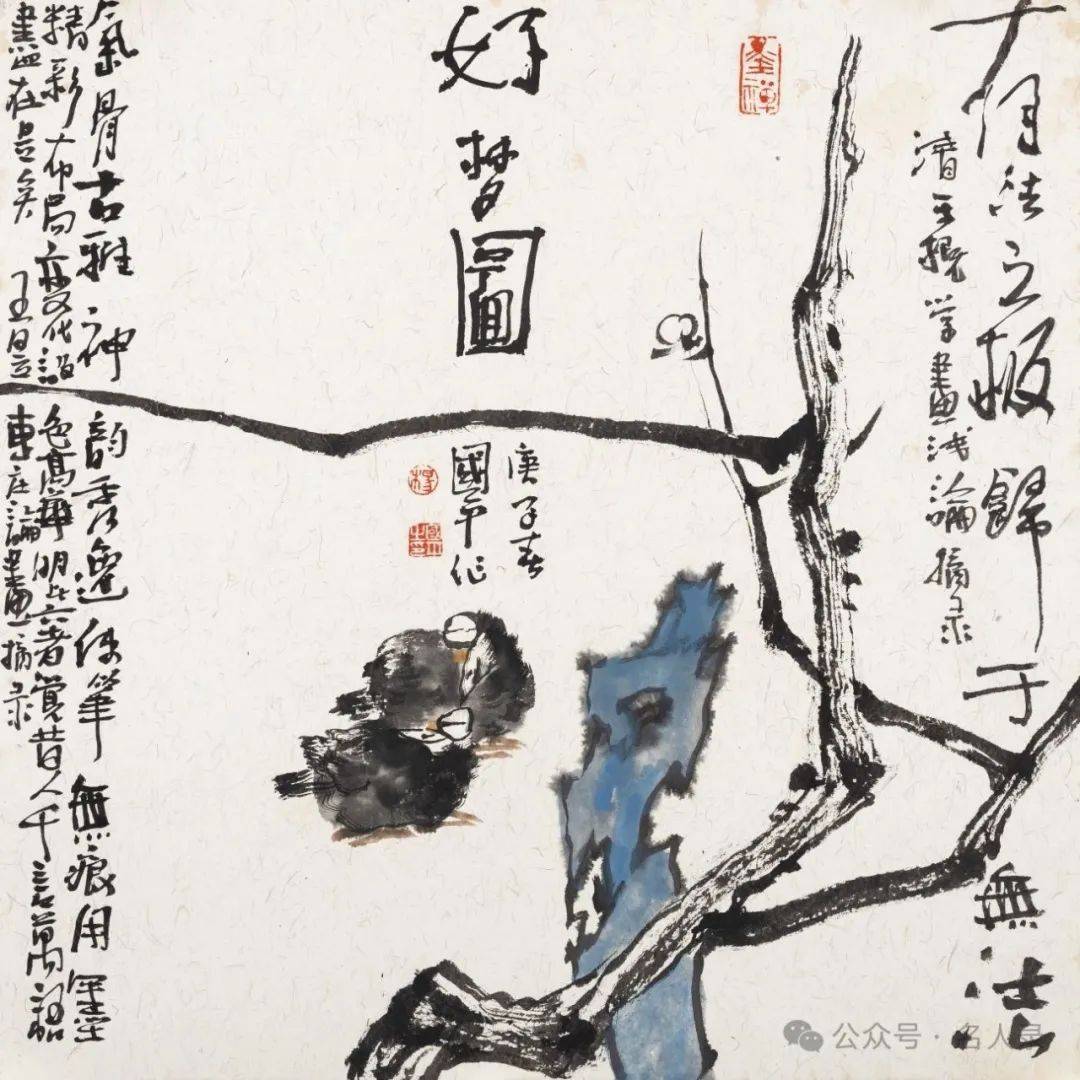 有法之极歸于無法
清王概学畫浅論摘录
墨禅
好梦圖
庚子春
國平作
氣骨古雅神韵秀逸使筆無痕用墨
精彩布局变化設色高華明此六者覺昔人千言萬語
盡在是矣 王昱東庄論畫摘录
公众号 · 名人